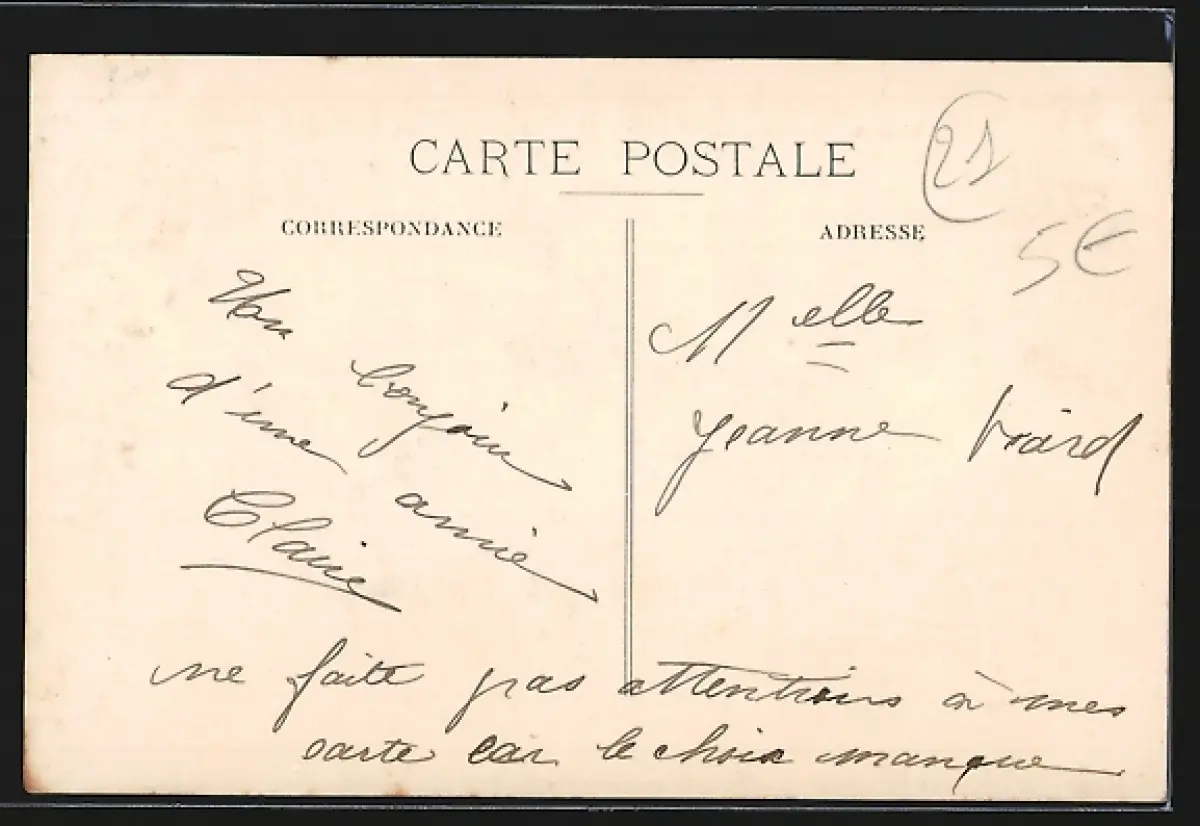 CARTE POSTALE
21
5€
CORRESPONDANCE
ADRESSE
Un bonjour
d'une amie
Claire
Melle
Jeanne Viard
ne faite pas attentions à mes
carte car le choix manque